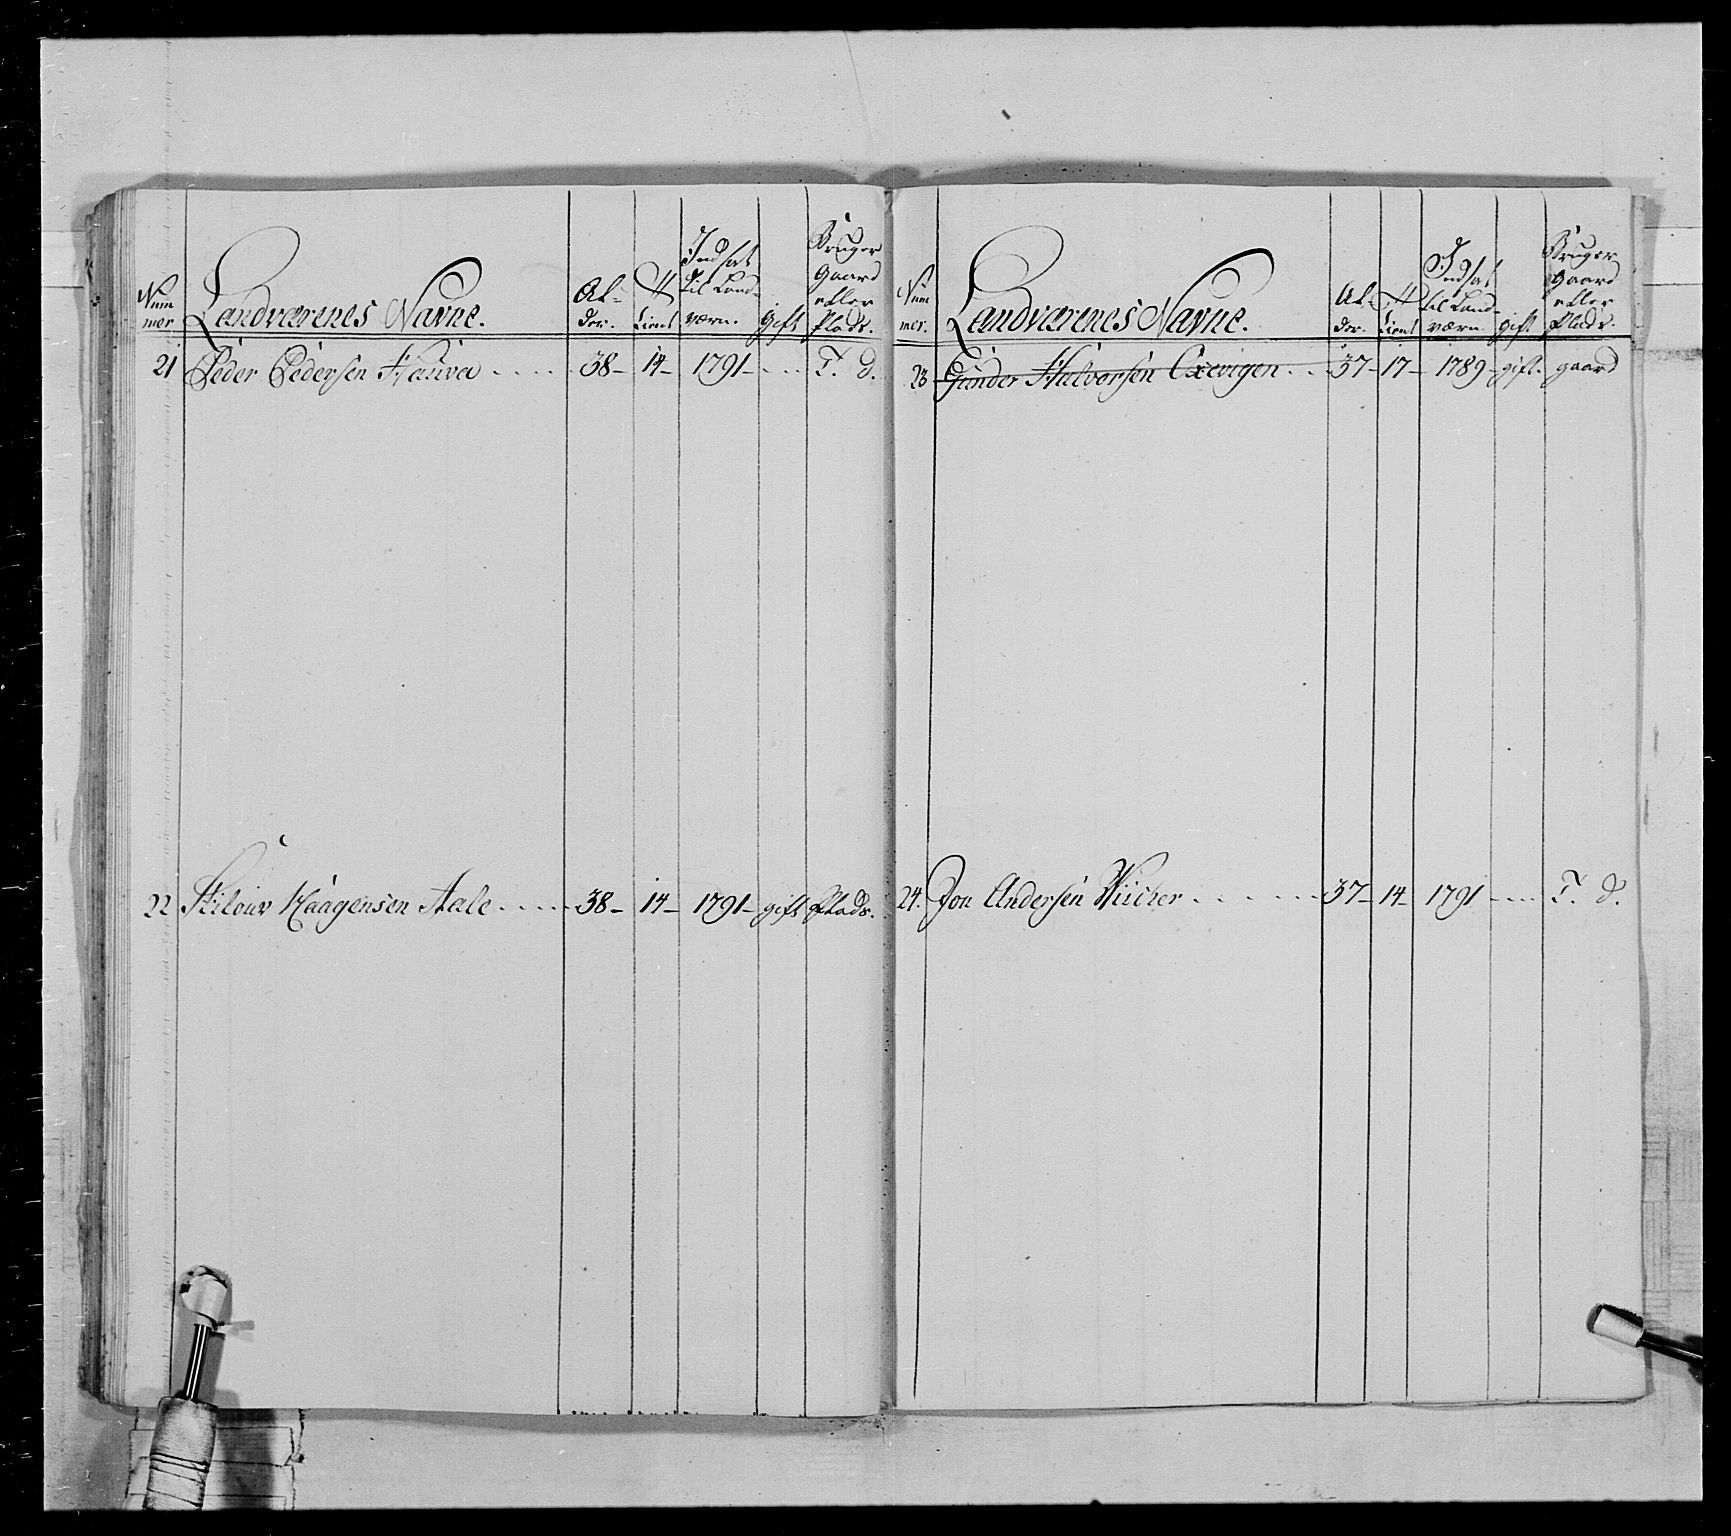 Num
mer
Landværenes Navne.
Al-
der.
Tient
Indsat
til Land-
værn.
Gift
Bruger
Gaard
eller
Plads.
21 Peder Pedersen Hauva 38 - 14 - 1791 - T. d.
22 Haagensen Aale 38 - 14 - 1791 - gift Plads.
Num
mer.
Landværenes Navne.
Al-
der.
Tient
Indsat
til Land-
værn.
gift
Bruger
Gaard
eller
Plads.
23 Gunder Halvorsen Oxevigen 37 - 17 - 1789 - gift. gaard
24. Jon Andersen 37 - 14 - 1791 T. d.